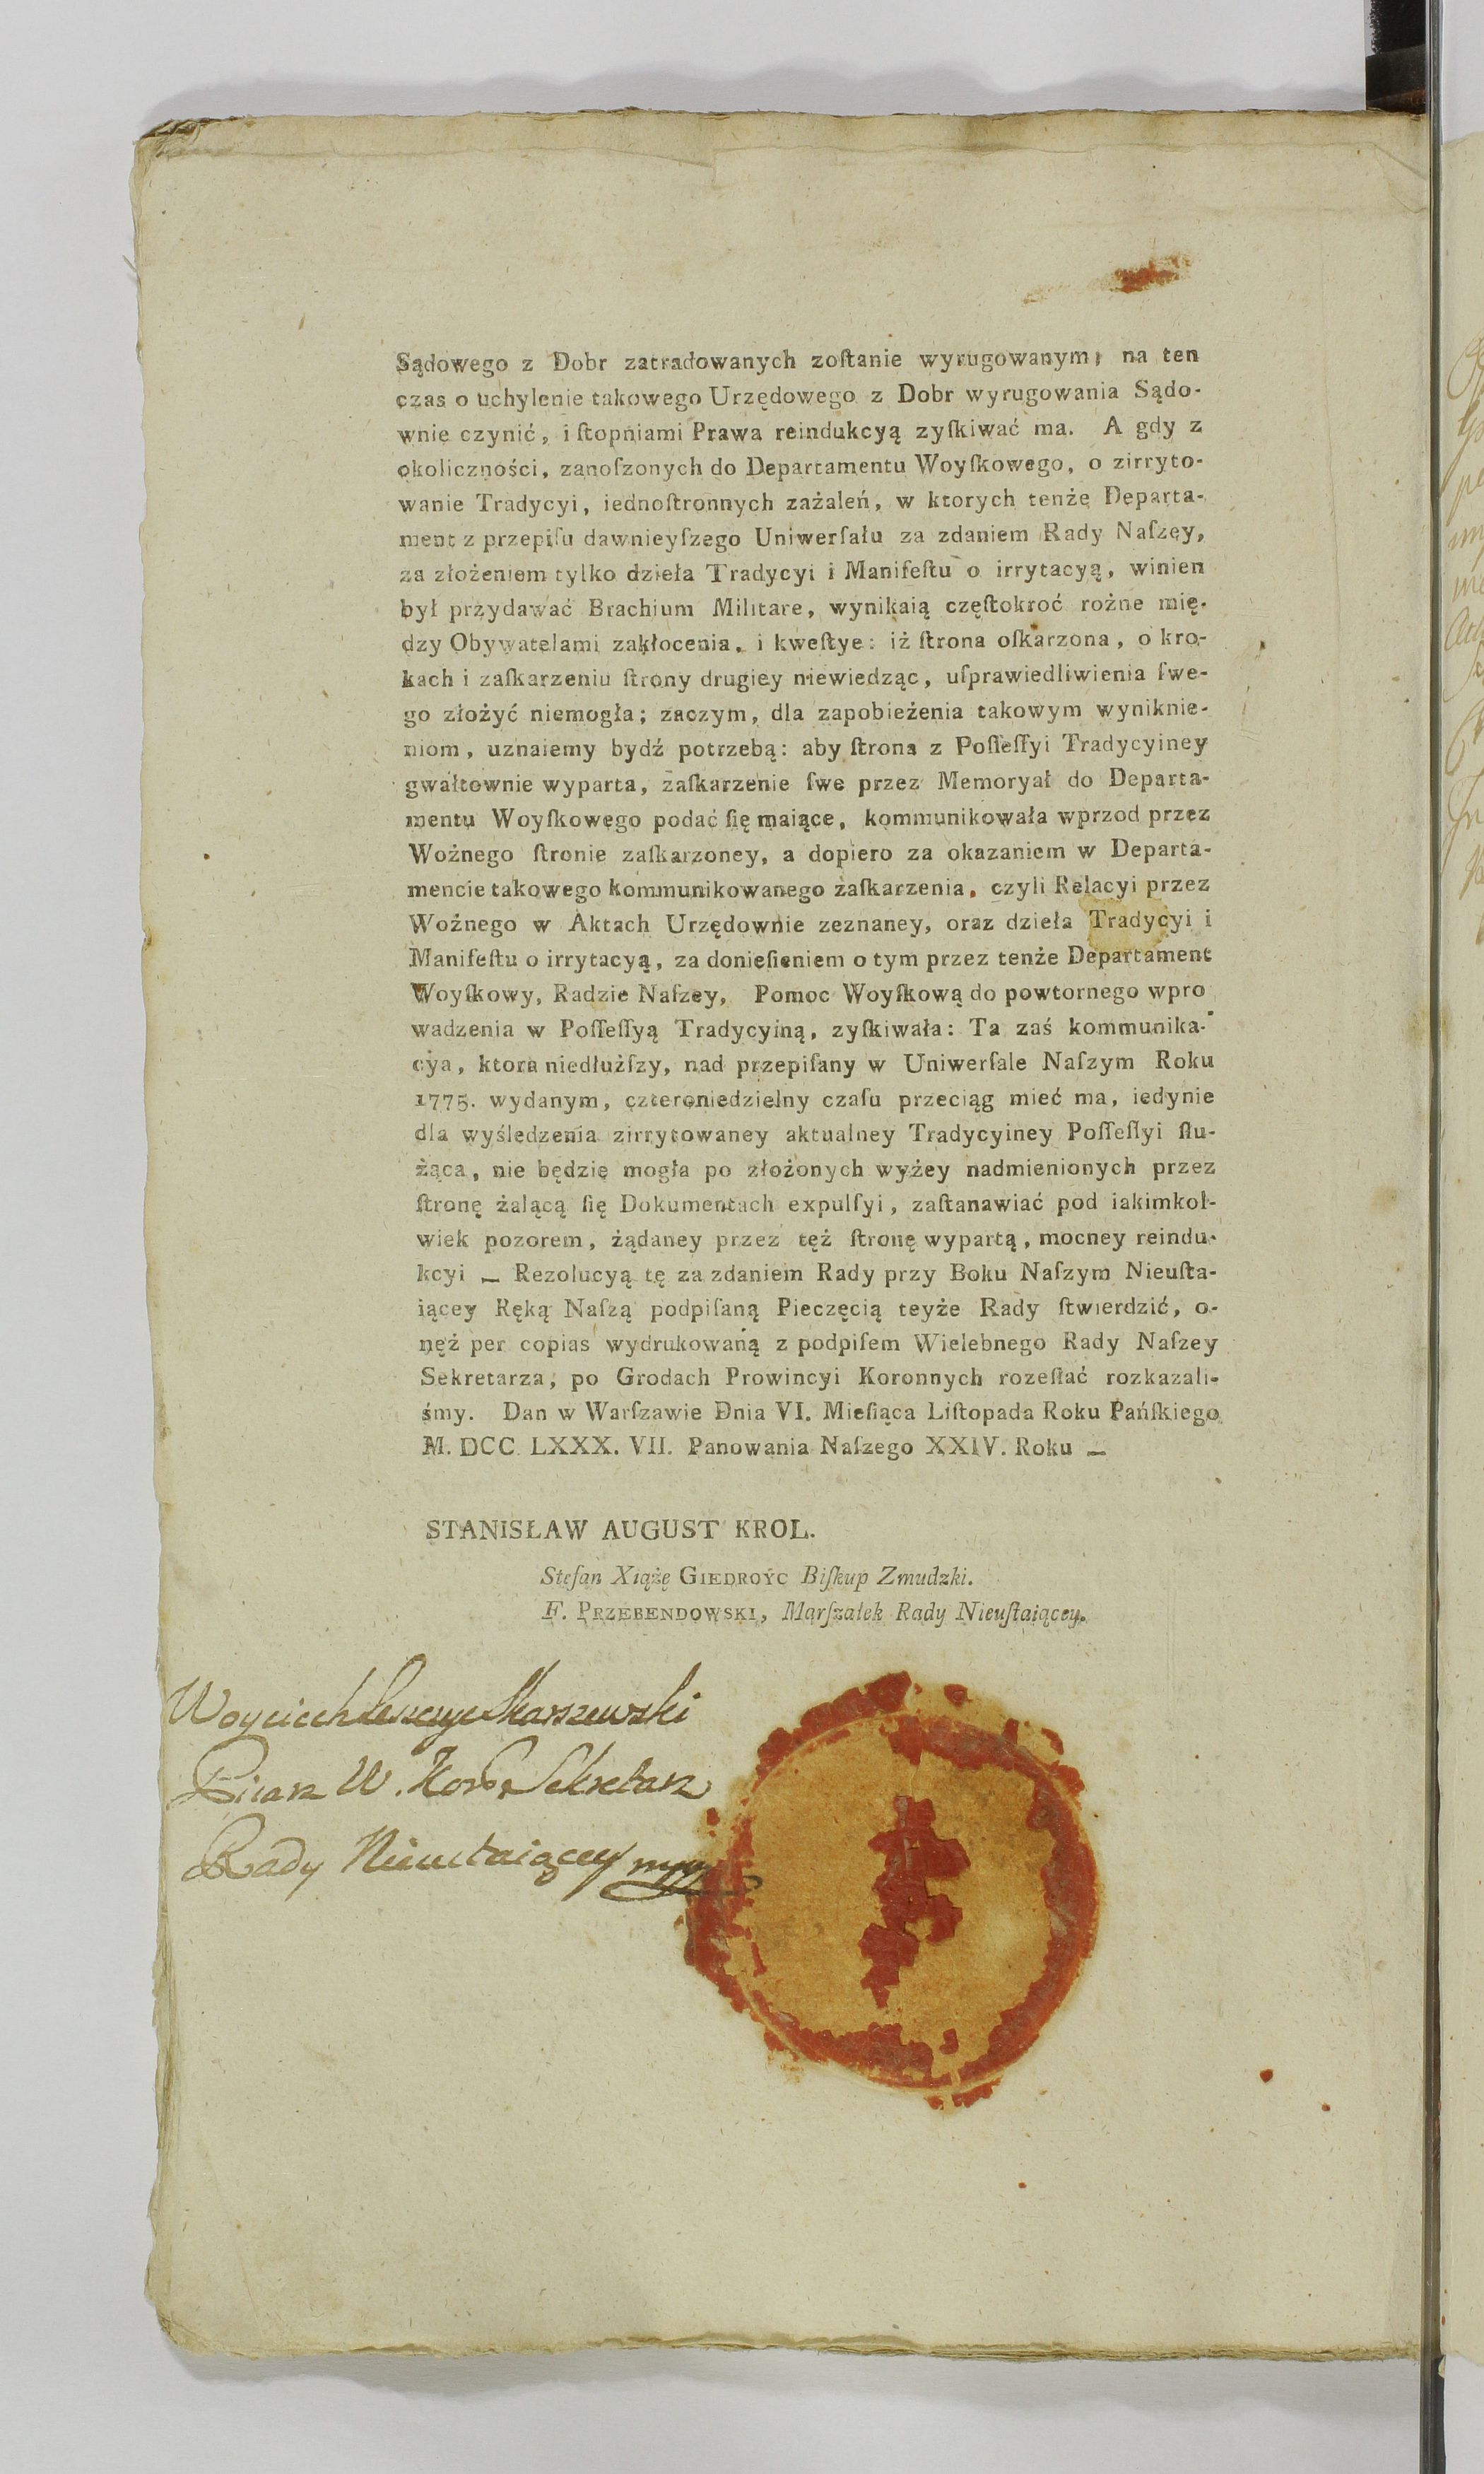 Sądowego z Dobr zatradowanych zoſtanie wyrugowanym, na ten
czas o uchylenie takowego Urzędowego z Dobr wyrugowania Sądo-
wnie czynić, i ſtopniami Prawa reindukcyą zyſkiwać ma. A gdy z
okoliczności, zanoſzonych do Departamentu Woyſkowego, o zirryto-
wanie Tradycyi, iednoſtronnych zażaleń, w ktorych tenże Departa-
ment z przepiſu dawnieyſzego Uniwerſału za zdaniem Rady Naſzey,
za złożeniem tylko dzieła Tradycyi i Manifeſtu o irrytacyą, winien
był przydawać Brachium Militare, wynikaią częſtokroć rożne mię-
dzy Obywatelami zakłocenia, i kweſtye: iż ſtrona oſkarzona, o kro-
kach i zaſkarzeniu ſtrony drugiey niewiedząc, uſprawiedliwienia ſwe-
go złożyć niemogła; zaczym, dla zapobieżenia takowym wyniknie-
niom, uznaiemy bydź potrzebą: aby ſtrona z Poſſeſſyi Tradycyiney
gwałtownie wyparta, zaſkarzenie ſwe przez Memoryał do Departa-
mentu Woyſkowego podać ſię maiące, kommunikowała wprzod przez
Woźnego ſtronie zaſkarzoney, a dopiero za okazaniem w Departa-
mencie takowego kommunikowanego zaſkarzenia, czyli Relacyi przez
Woźnego w Aktach Urzędownie zeznaney, oraz dzieła Tradycyi i
Manifeſtu o irrytacyą, za donieſieniem o tym przez tenże Departament
Woyſkowy, Radzie Naſzey, Pomoc Woyſkową do powtornego wpro
wadzenia w Poſſeſſyą Tradycyiną, zyſkiwała: Ta zaś kommunika-
cya, ktora niedłużſzy, nad przepiſany w Uniwerſale Naſzym Roku
1775. wydanym, czteroniedzielny czaſu przeciąg mieć ma, iedynie
dla wyśledzenia zirrytowaney aktualney Tradycyiney Poſſeſſyi ſłu-
żąca, nie będzie mogła po złożonych wyżey nadmienionych przez
ſtronę żalącą ſię Dokumentach expulſyi, zaſtanawiać pod iakimkol-
wiek pozorem, żądaney przez tęż ſtronę wypartą, mocney reindu-
kcyi — Rezolucyą tę za zdaniem Rady przy Boku Naſzym Nieuſta-
iącey Ręką Naſzą podpiſaną Pieczęcią teyże Rady ſtwierdzić, o-
nęż per copias wydrukowaną z podpiſem Wielebnego Rady Naſzey
Sekretarza, po Grodach Prowincyi Koronnych rozeſłać rozkazali-
śmy. Dan w Warſzawie Dnia VI. Mieſiąca Liſtopada Roku Pańſkiego
M. DCC. LXXX. VII. Panowania Naſzego XXIV. Roku —
STANISŁAW AUGUST KROL.
Stefan Xiążę GIEDROYC Biſkup Zmudzki.
F. PRZEBENDOWSKI, Marſzałek Rady Nieuſtaiącey.
Woyciech Leszczyc Skarszewski
Pisarz W. Kor. Sekretarz
Rady Nieustaiącey mpp